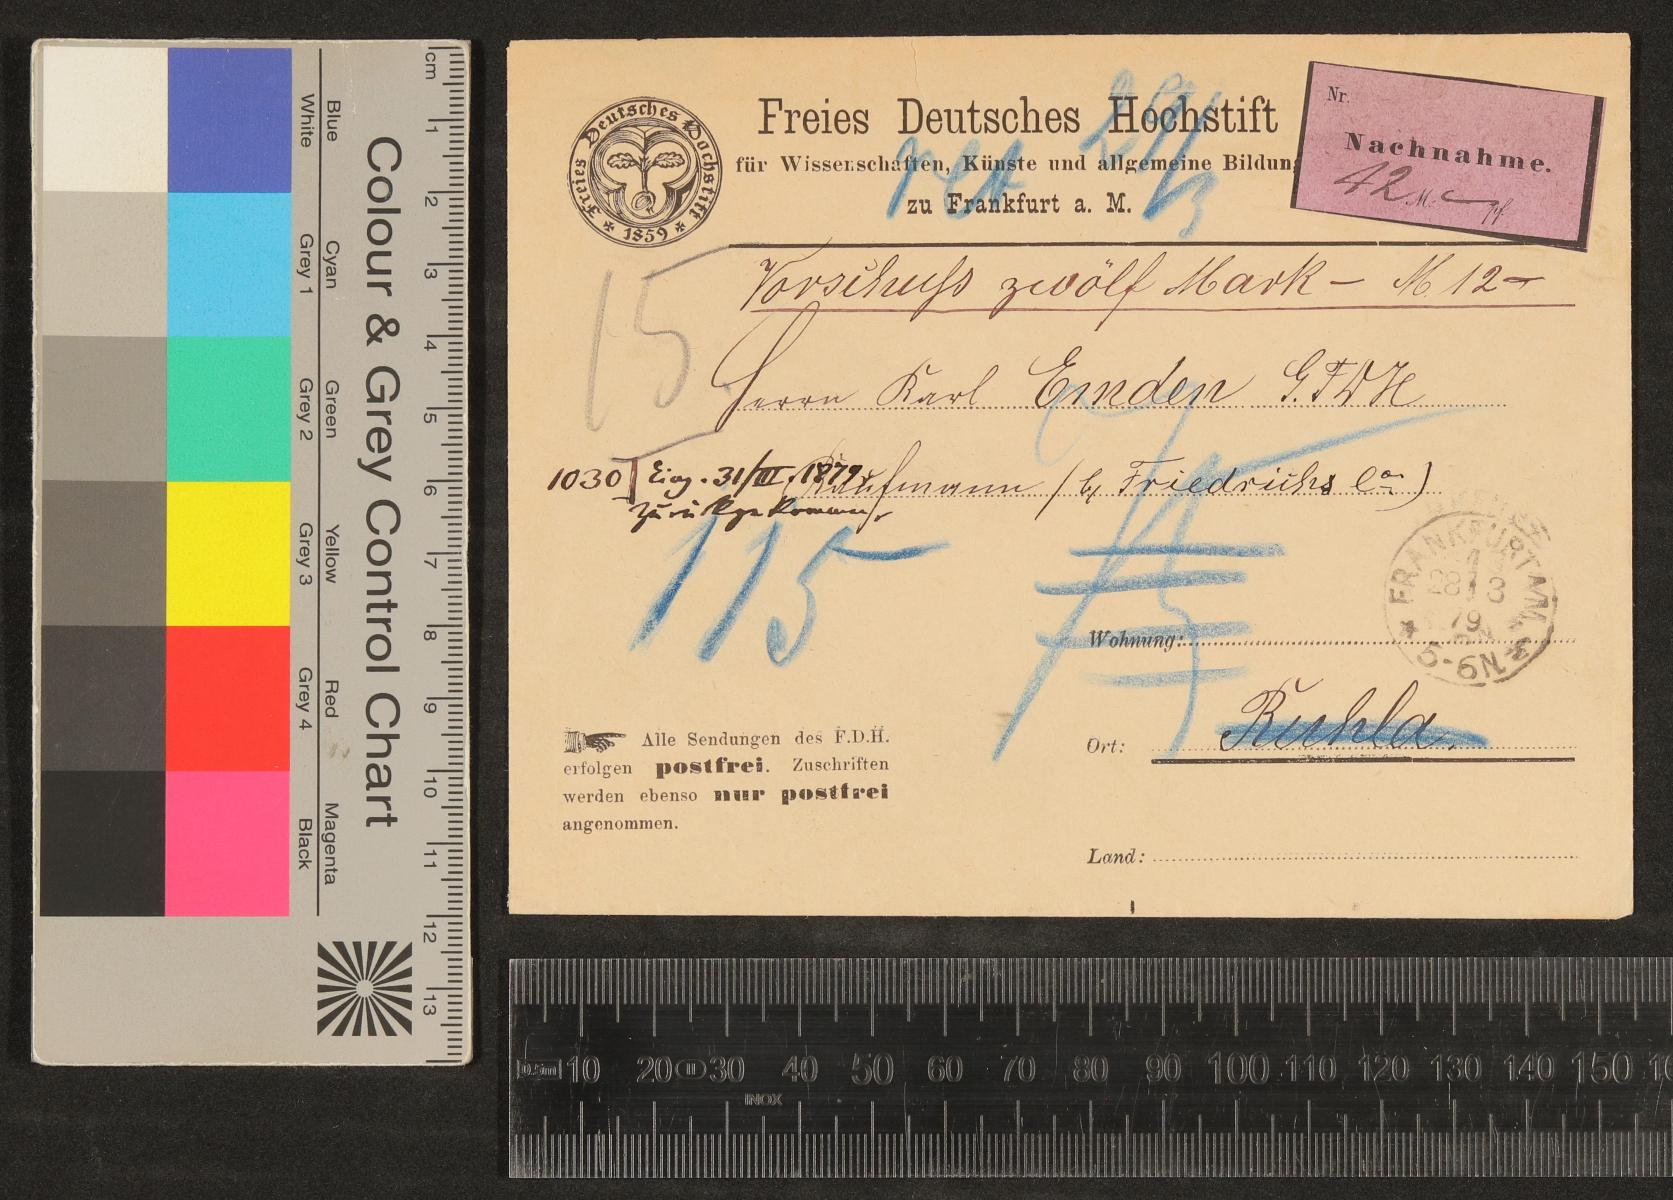 Colour & Grey Control Chart
Blue Cyan Green Yellow Red Magenta
White Grey 1 Grey 2 Grey 3 Grey 4 Black
cm 1 2 3 4 5 6 7 8 9 10 11 12 13
Freies Deutsches Hochstift
1859
Freies Deutsches Hochstift
für Wissenschaften, Künste und allgemeine Bildung
zu Frankfurt a. M.
Nr.
Nachnahme.
12 M. — pf.
Vorschuß zwölf Mark – M. 12–
15
Herrn Karl Emden G.FDH
1030 Eing. 31/III. 1879.
zurückgekommen
Kaufmann (b/ Friedrichs Co)
115
FRANKFURT A/M
28 3
79
5-6N
Wohnung:
Ort: Ruhla.
Land:
Alle Sendungen des F.D.H.
erfolgen postfrei. Zuschriften
werden ebenso nur postfrei
angenommen.
0.5m 10 20 II 30 40 50 60 70 80 90 100 110 120 130 140 150
INOX